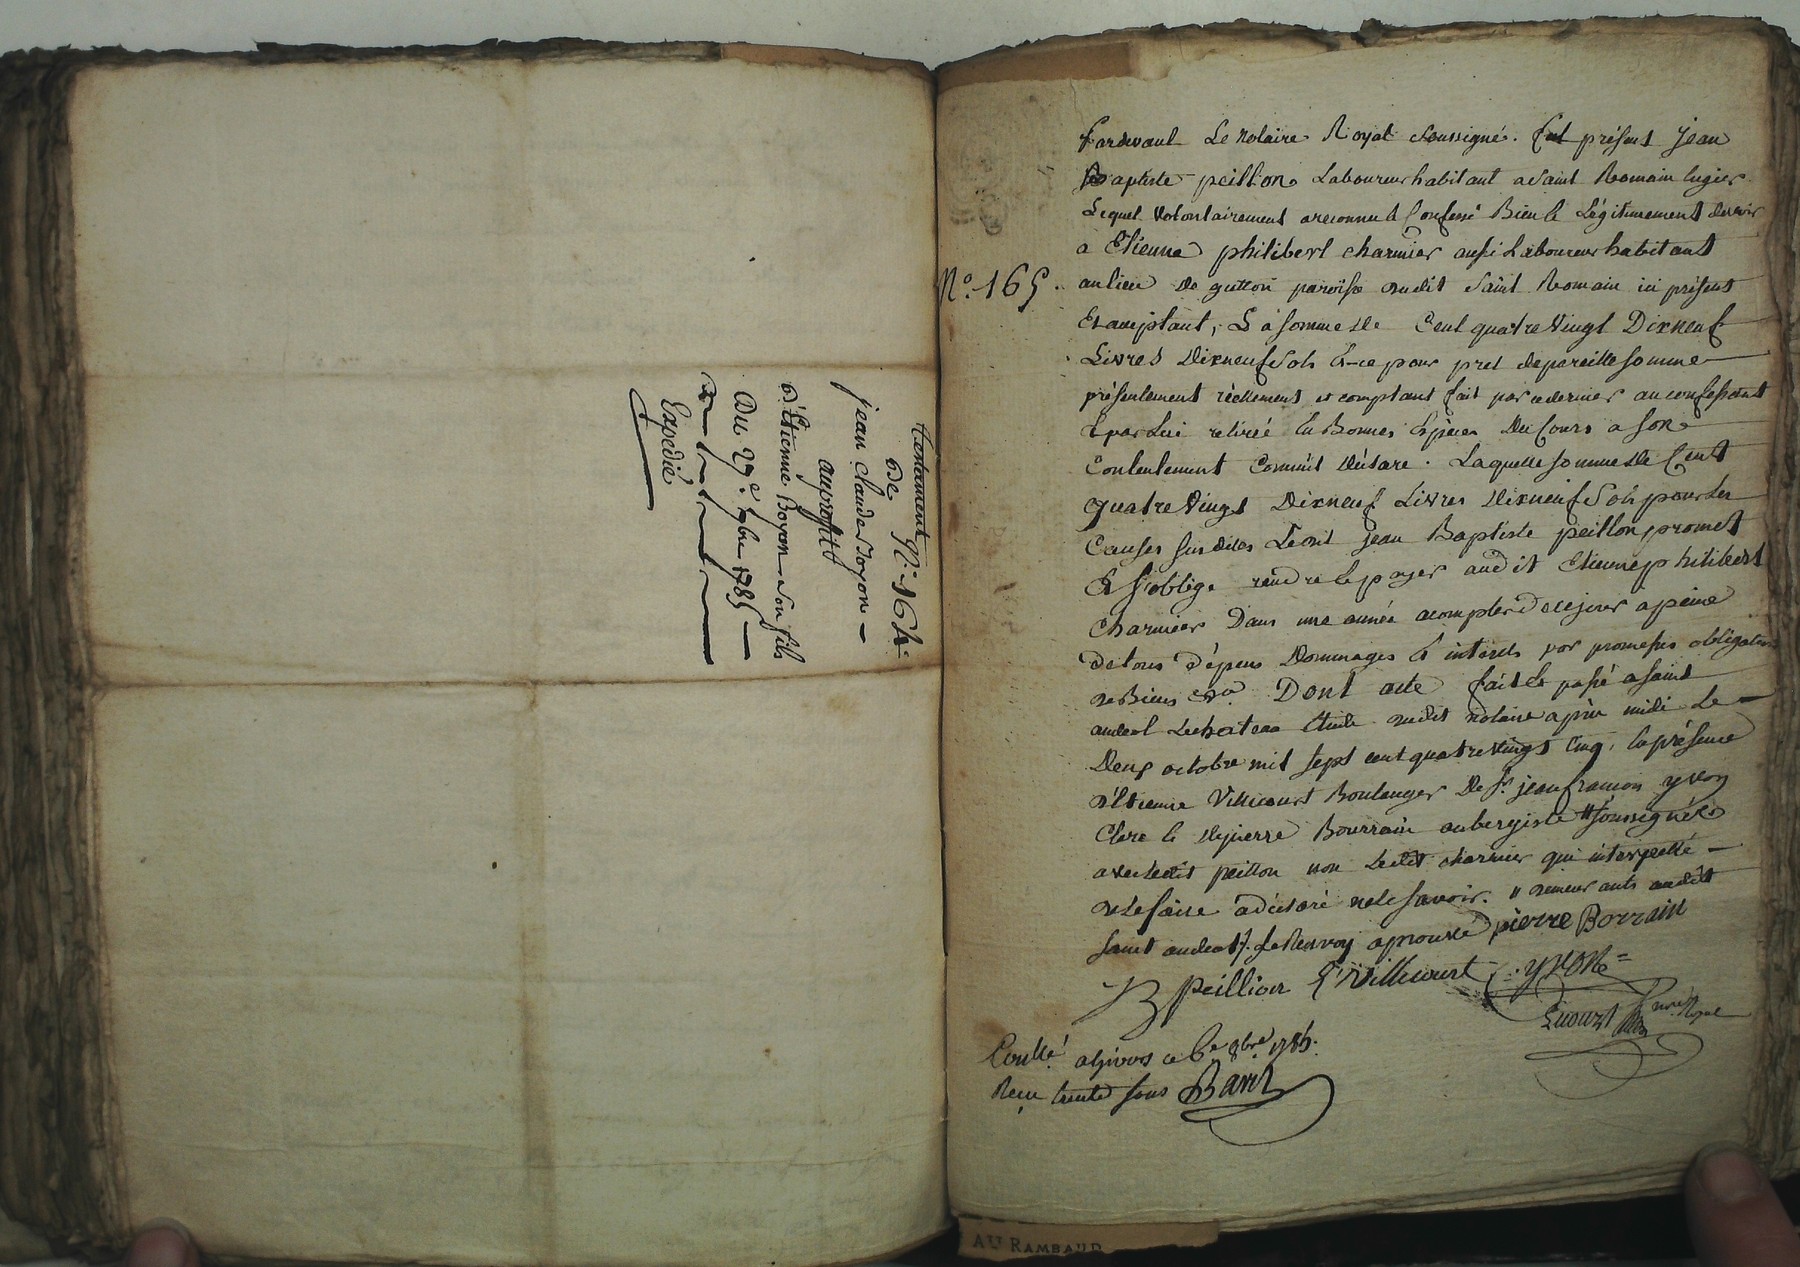 testament N.° 164.
De
jean claude Boyon —
au profit
D'Etienne Boyon — son fils
Du 27.e 7bre 1785 —
Expedié
N.° 165.
Pardevant Le Notaire Royal soussigné. fut présent jean
Baptiste peillon Laboureur habitant a saint Romain
Lequel volontairement a reconnu & Confessé Bien & Légitimement devoir
a Etienne philibert charmier aussi Laboureur habitant
au lieu De gutton paroisse dudit saint Romain ici présent
Et acceptant, La somme De Cent quatre vingt Dixneuf
Livres Dixneuf sols & ce pour pret de pareille somme
présentement réellement et comptant fait par ce dernier au confessant
& par Lui retirée En Bonnes Espèces Du Cours a son
Contentement Comm'il déclare. Laquelle somme De Cent
quatre vingt Dixneuf Livres Dixneuf sols pour Les
Causes susdites Ledit jean Baptiste peillon promet
Et s'oblige rendre & payer audit Etienne philibert
Charmier Dans une année a compter De ce jour a peine
De tous dépens Dommages & intérets par promesses obligation
De Biens &a. Dont acte fait & passé a saint
andeol Lechateau Etude dudit notaire après midi Le —
Deux octobre mil sept cent quatre vingt Cinq, En présence
d'Etienne Villicourt Boulanger De Sr. jean francois yvon
Clerc & De pierre Bourrain aubergiste // soussignés
avec Ledit peillon non Ledit charmier qui interpellé —
De Le faire a déclaré ne le savoir. // demeurants audit
saint andeol /. Le Renvoy aprouvé pierre Borrain
B peillion E. Villicourt yvon
not.re Royal
Conllé. a givors ce 6e 8bre 1785.
Reçu trente sous
AU RAMBAUD